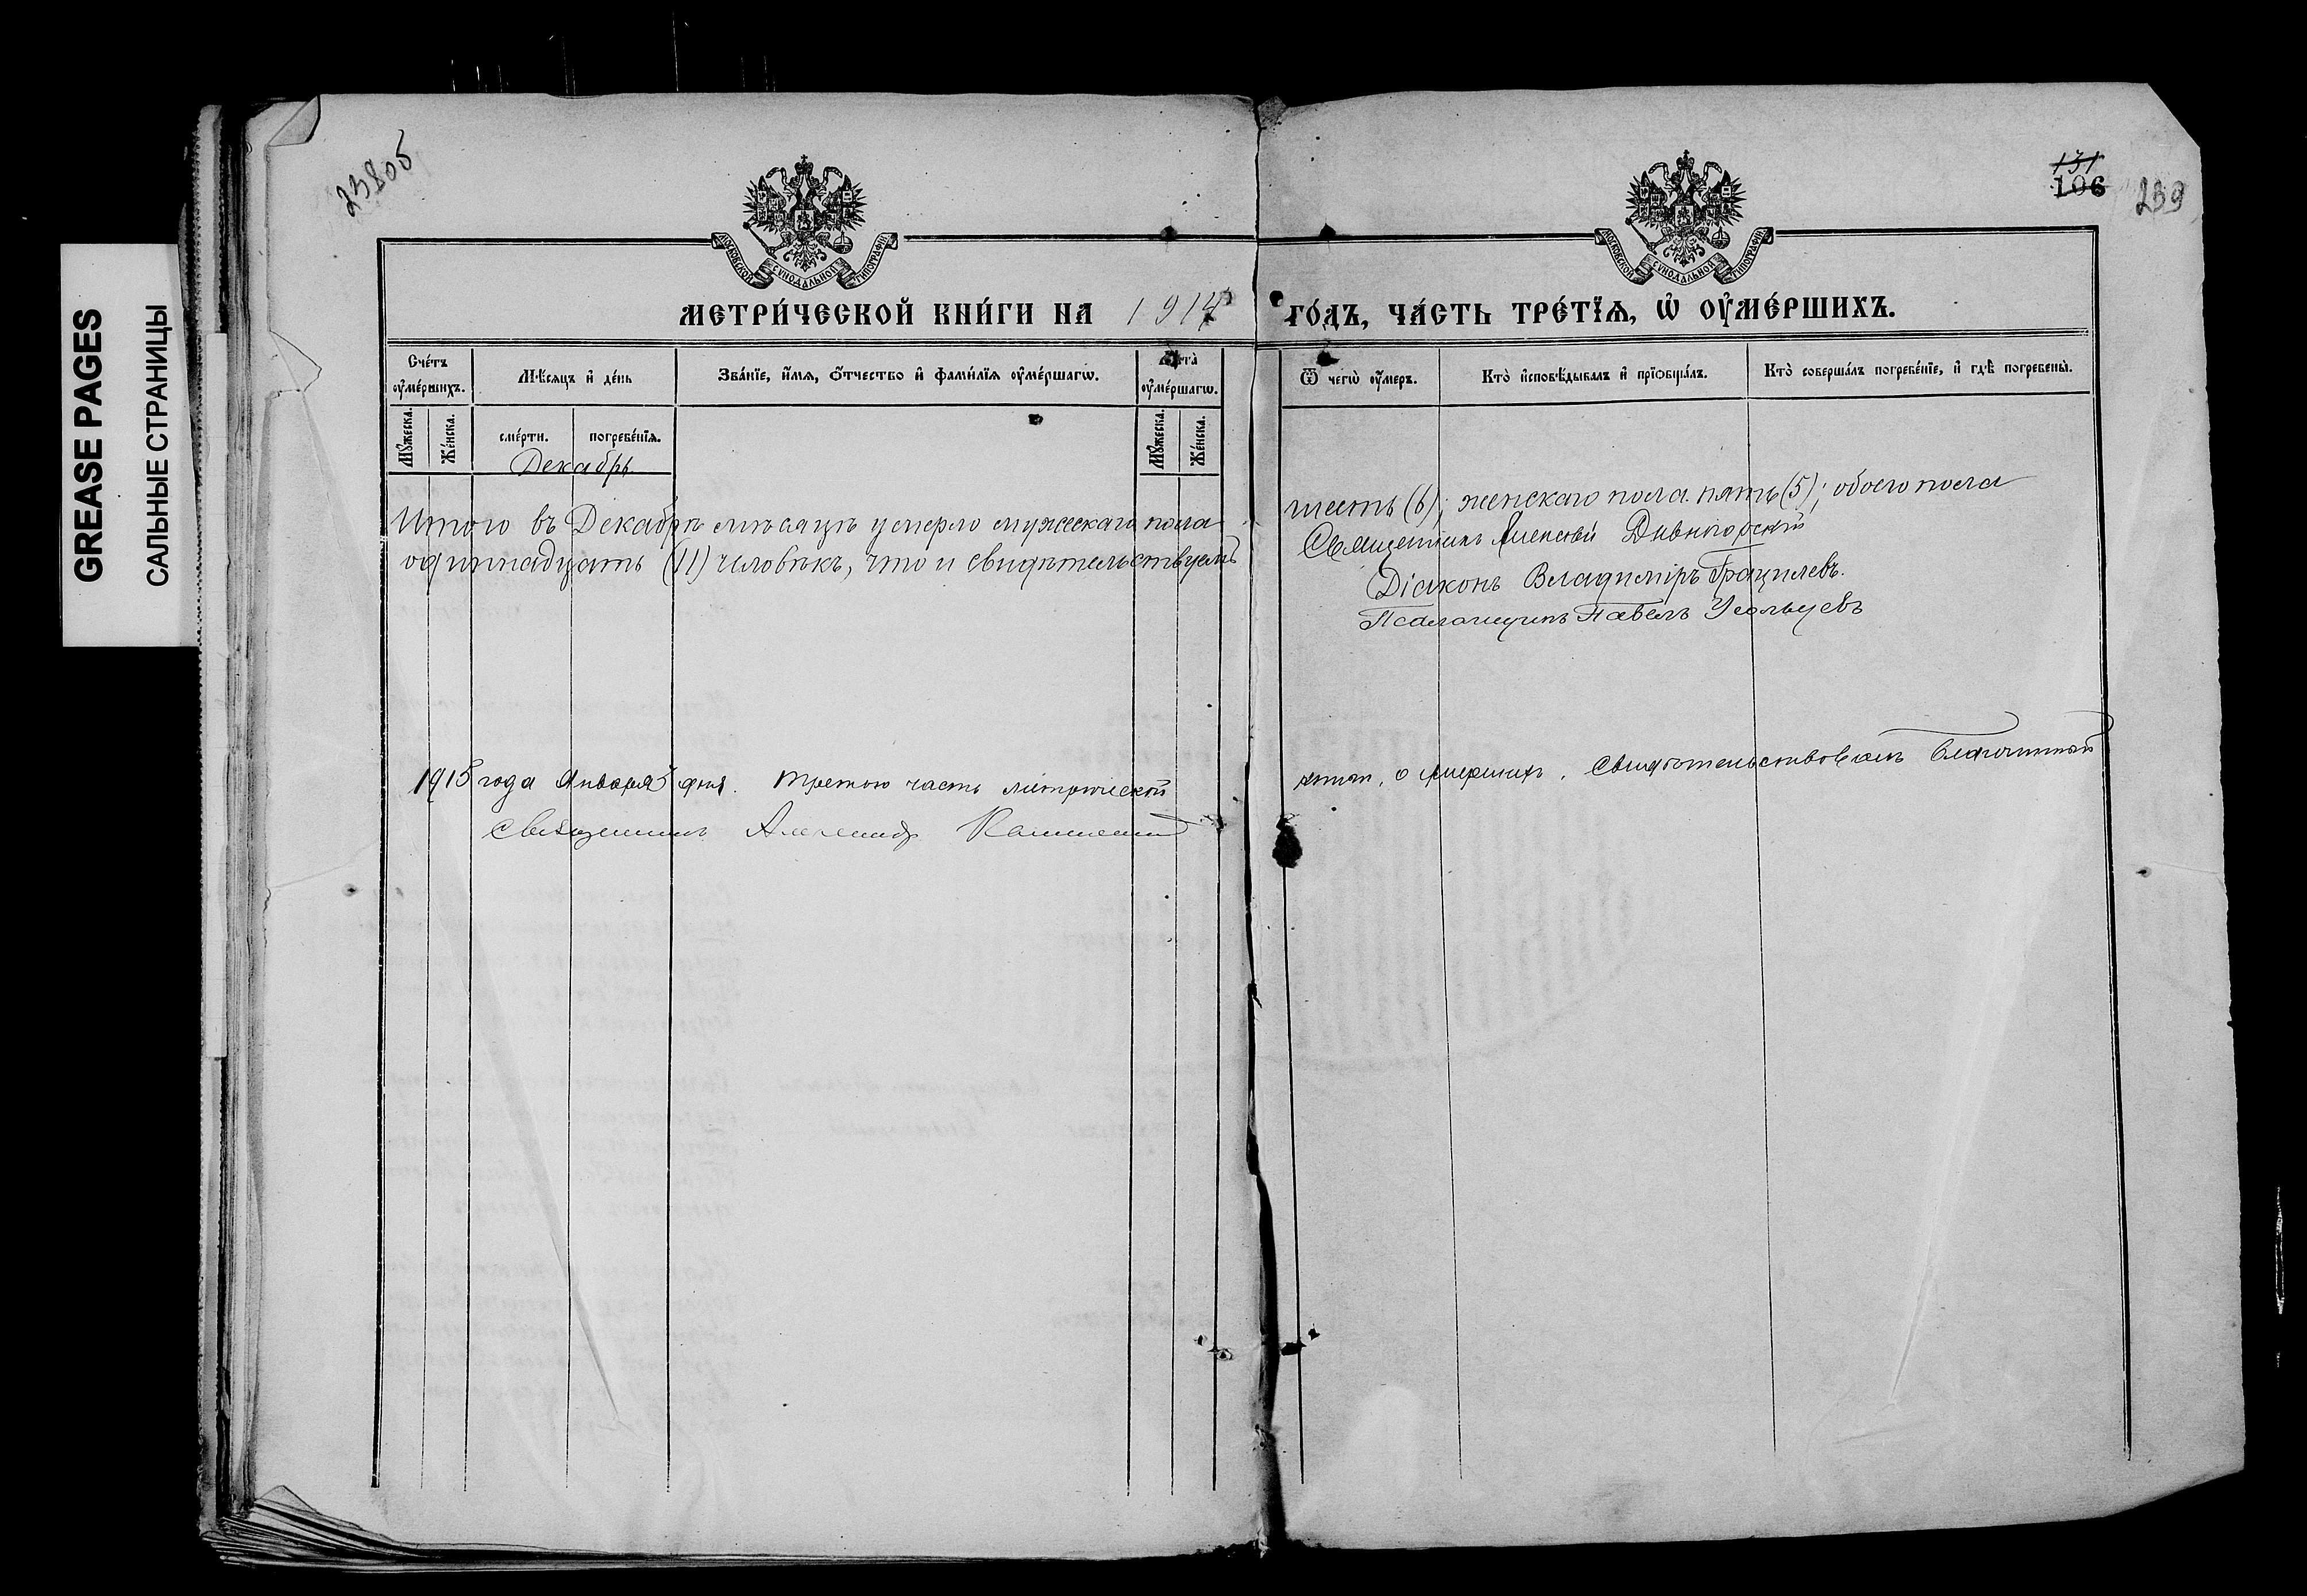 GREASE PAGES
САЛЬНЫЕ СТРАНИЦЫ
23805
131
106
239
МОСКОВСКОЙ СѴНОДАЛЬНОЙ ТИПОГРАФІИ
МОСКОВСКОЙ СѴНОДАЛЬНОЙ ТИПОГРАФІИ
МЕТРИ́ЧЕСКОЙ КНИ́ГИ НА 1914 ГО́ДЪ, ЧА́СТЬ ТРЕ́ТЇѦ, Ѡ҆ ОУ҆МЕ́РШИХЪ.
Сче́тъ оу҆ме́ршихъ.
Мꙋ́жеска.
Же́нска.
Мѣ́сѧцъ и҆ де́нь
сме́рти.
погребе́нїѧ.
Зва́нїе, и҆́мѧ, ѻ҆́тчество и҆ фами́лїѧ оу҆ме́ршагѡ.
Лѣта̀ оу҆ме́ршагѡ.
Мꙋ́жеска.
Же́нска.
Ѿ чегѡ̀ оу҆́меръ.
Кто̀ и҆сповѣ́дывалъ и҆ прїѡбща́лъ.
Кто̀ соверша́лъ погребе́нїе, и҆ гдѣ̀ погребены̀.
Декабрь
Итого въ Декабрѣ мѣсяцѣ умерло мужескаго пола шесть (6); женскаго пола пять (5); обоего пола
одиннадцать (11) человѣкъ, что и свидѣтельствуемъ
Священникъ Алексѣй Дивногорскій
Діаконъ Владиміръ
Псаломщикъ Павелъ Усольцевъ
1915 года Января дня. Третью часть метрической
книги, о умершихъ, свидѣтельствовалъ Благочинный
Священникъ Александр